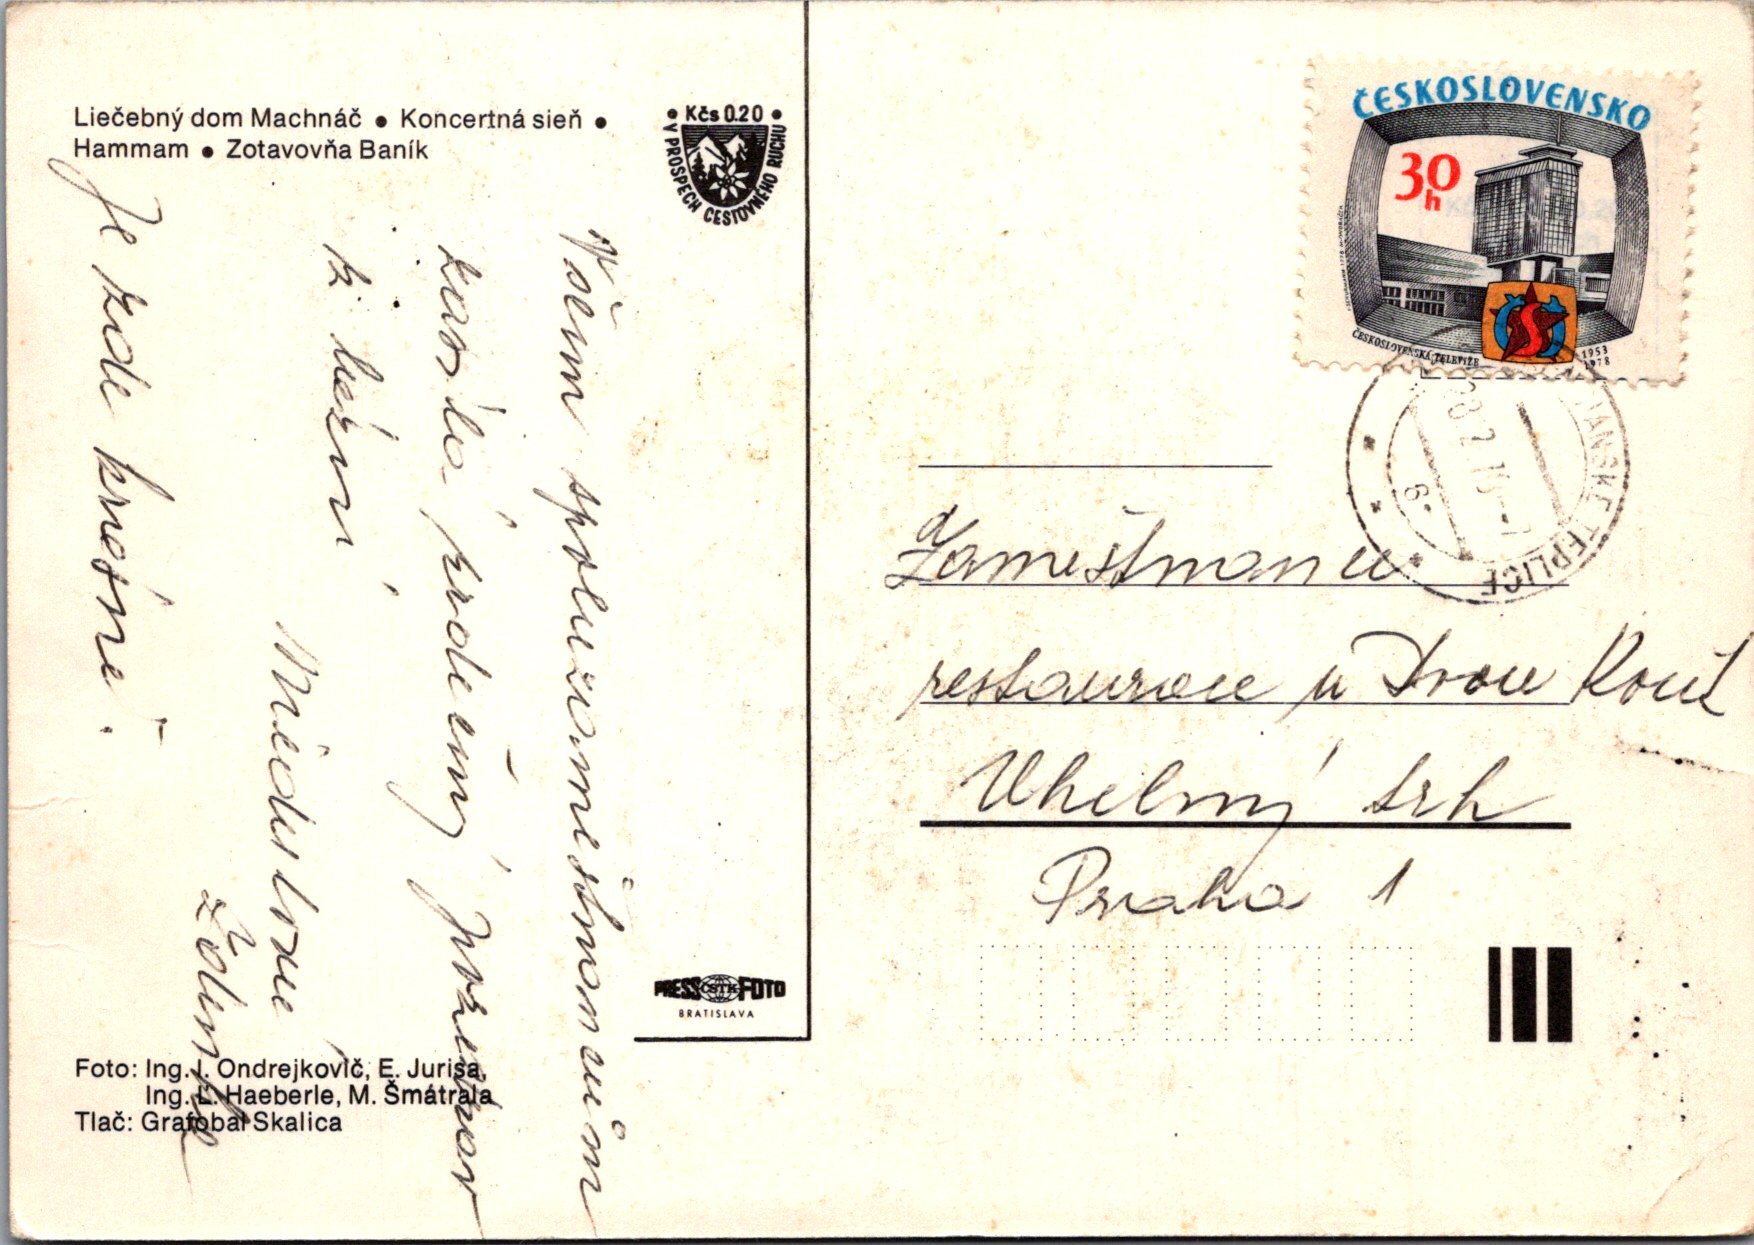 Liečebný dom Machnáč • Koncertná sieň •
Hammam • Zotavovňa Baník
• Kčs 0.20 •
V PROSPECH CESTOVNÉHO RUCHU
Všem spoluzaměstnancům
srdečný pozdrav
z lázní
Zdenka
Je zde krásně.
PRESS ČSTK FOTO
BRATISLAVA
Foto: Ing. J. Ondrejkovič, E. Jurisa,
Ing. L. Haeberle, M. Šmátrala
Tlač: Grafobal Skalica
ČESKOSLOVENSKO
30 h
ČESKOSLOVENSKÁ TELEVIZE
1953
1978
TEPLICE
Zaměstnanci
restaurace u Dvou Koček
Uhelný trh
Praha 1